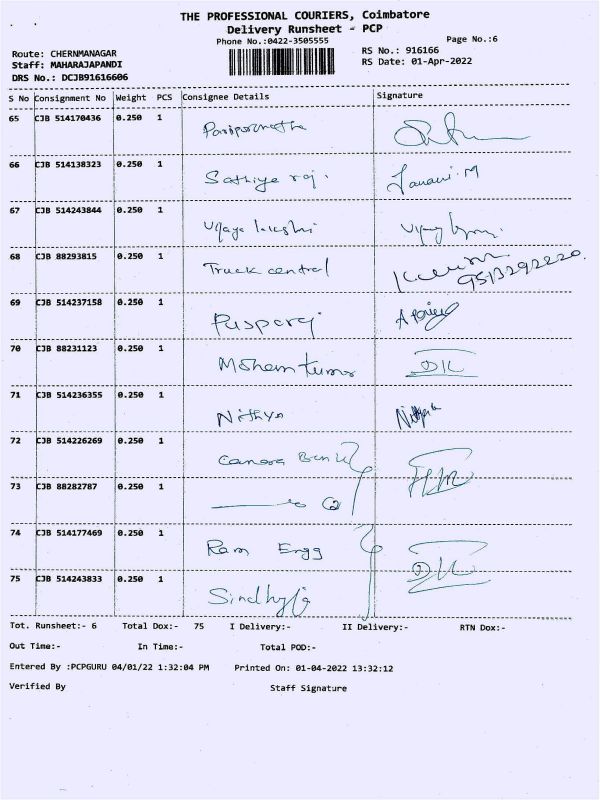 THE PROFESSIONAL COURIERS, Coimbatore
Delivery Runsheet - PCP
Phone No.:0422-3505555
Page No.:6
Route: CHERNMANAGAR
RS No.: 916166
Staff: MAHARAJAPANDI
RS Date: 01-Apr-2022
DRS No.: DCJB91616606
S No Consignment No Weight PCS Consignee Details Signature
65 CJB 514170436 0.250 1
66 CJB 514138323 0.250 1 Sathiya raj. Janani.M
67 CJB 514243844 0.250 1
68 CJB 88293815 0.250 1 Truck central 9513292220
69 CJB 514237158 0.250 1 Pusparaj
70 CJB 88231123 0.250 1 Mohan kumar
71 CJB 514236355 0.250 1 Nithya Nithya
72 CJB 514226269 0.250 1 Canara Bank
73 CJB 88282787 0.250 1
74 CJB 514177469 0.250 1 Ram Engg
75 CJB 514243833 0.250 1 Sindhuja
Tot. Runsheet:- 6 Total Dox:- 75 I Delivery:- II Delivery:- RTN Dox:-
Out Time:- In Time:- Total POD:-
Entered By :PCPGURU 04/01/22 1:32:04 PM Printed On: 01-04-2022 13:32:12
Verified By Staff Signature